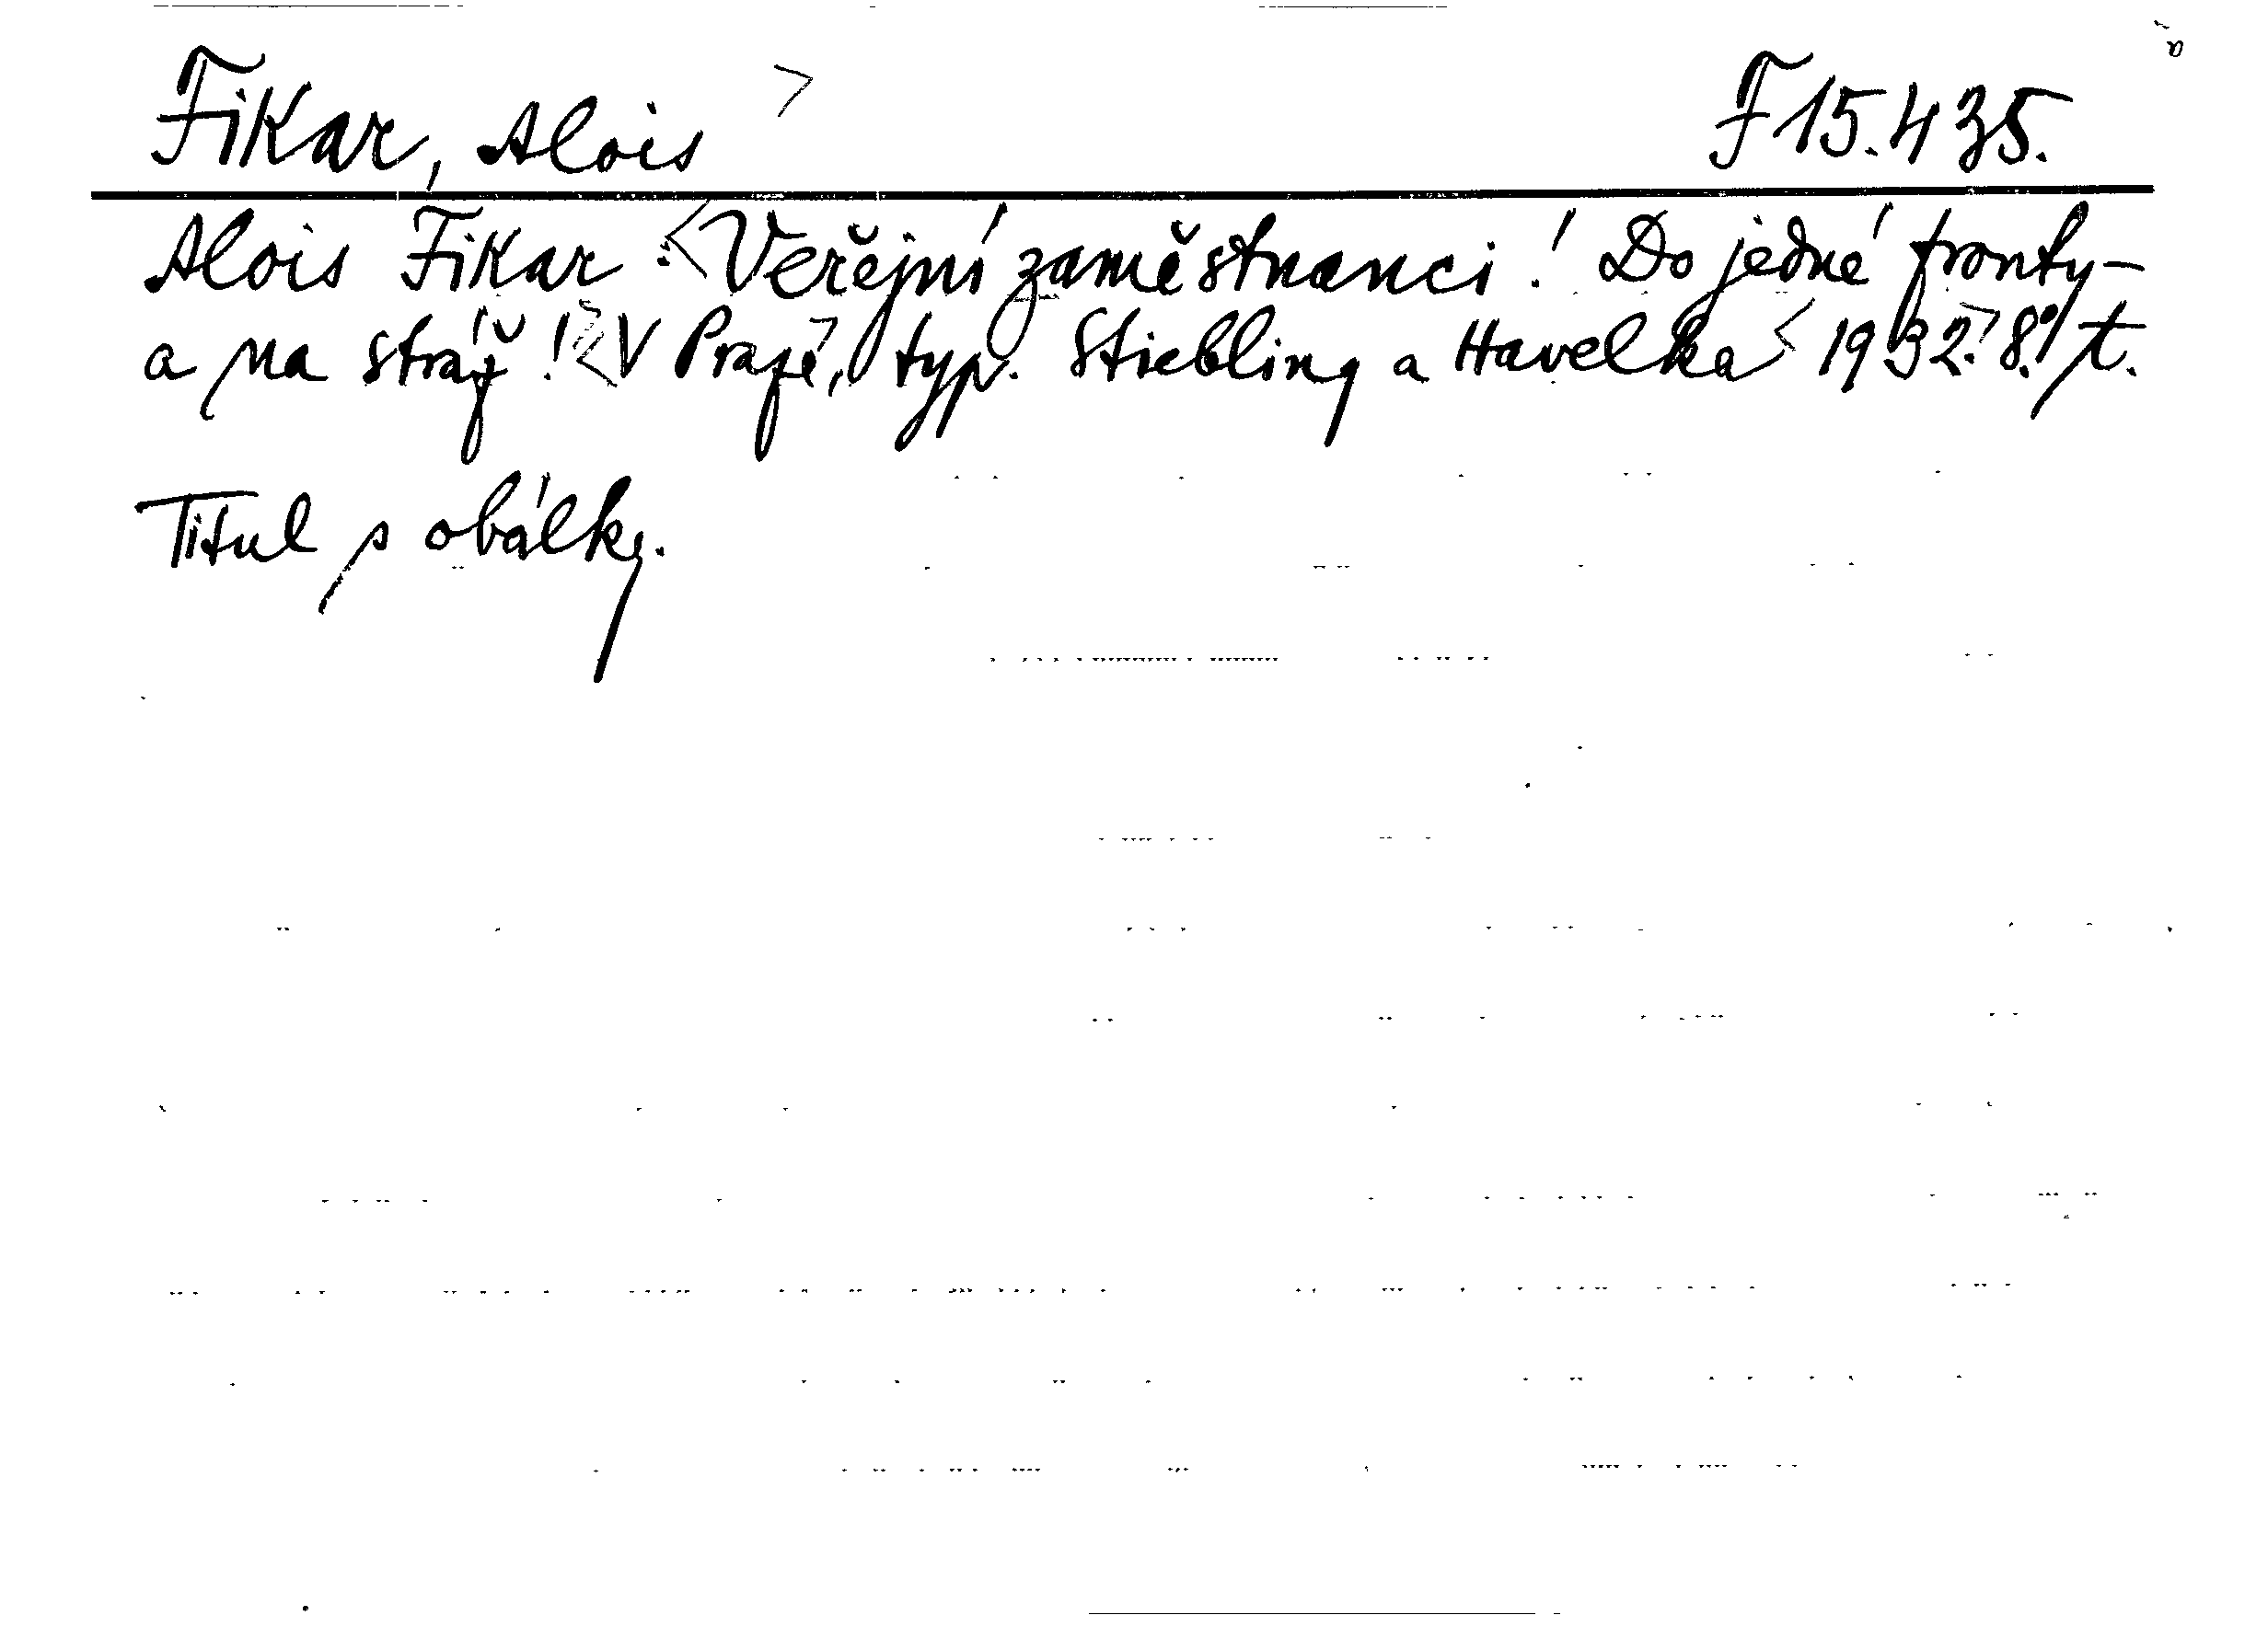 Fikar, Alois F 15.435.
Alois Fikar: Veřejní zaměstnanci! Do jedné fronty -
a na stráž! V Praze, typ. Stiebling a Havelka 1932. 8.° t.
Titul s obálky.